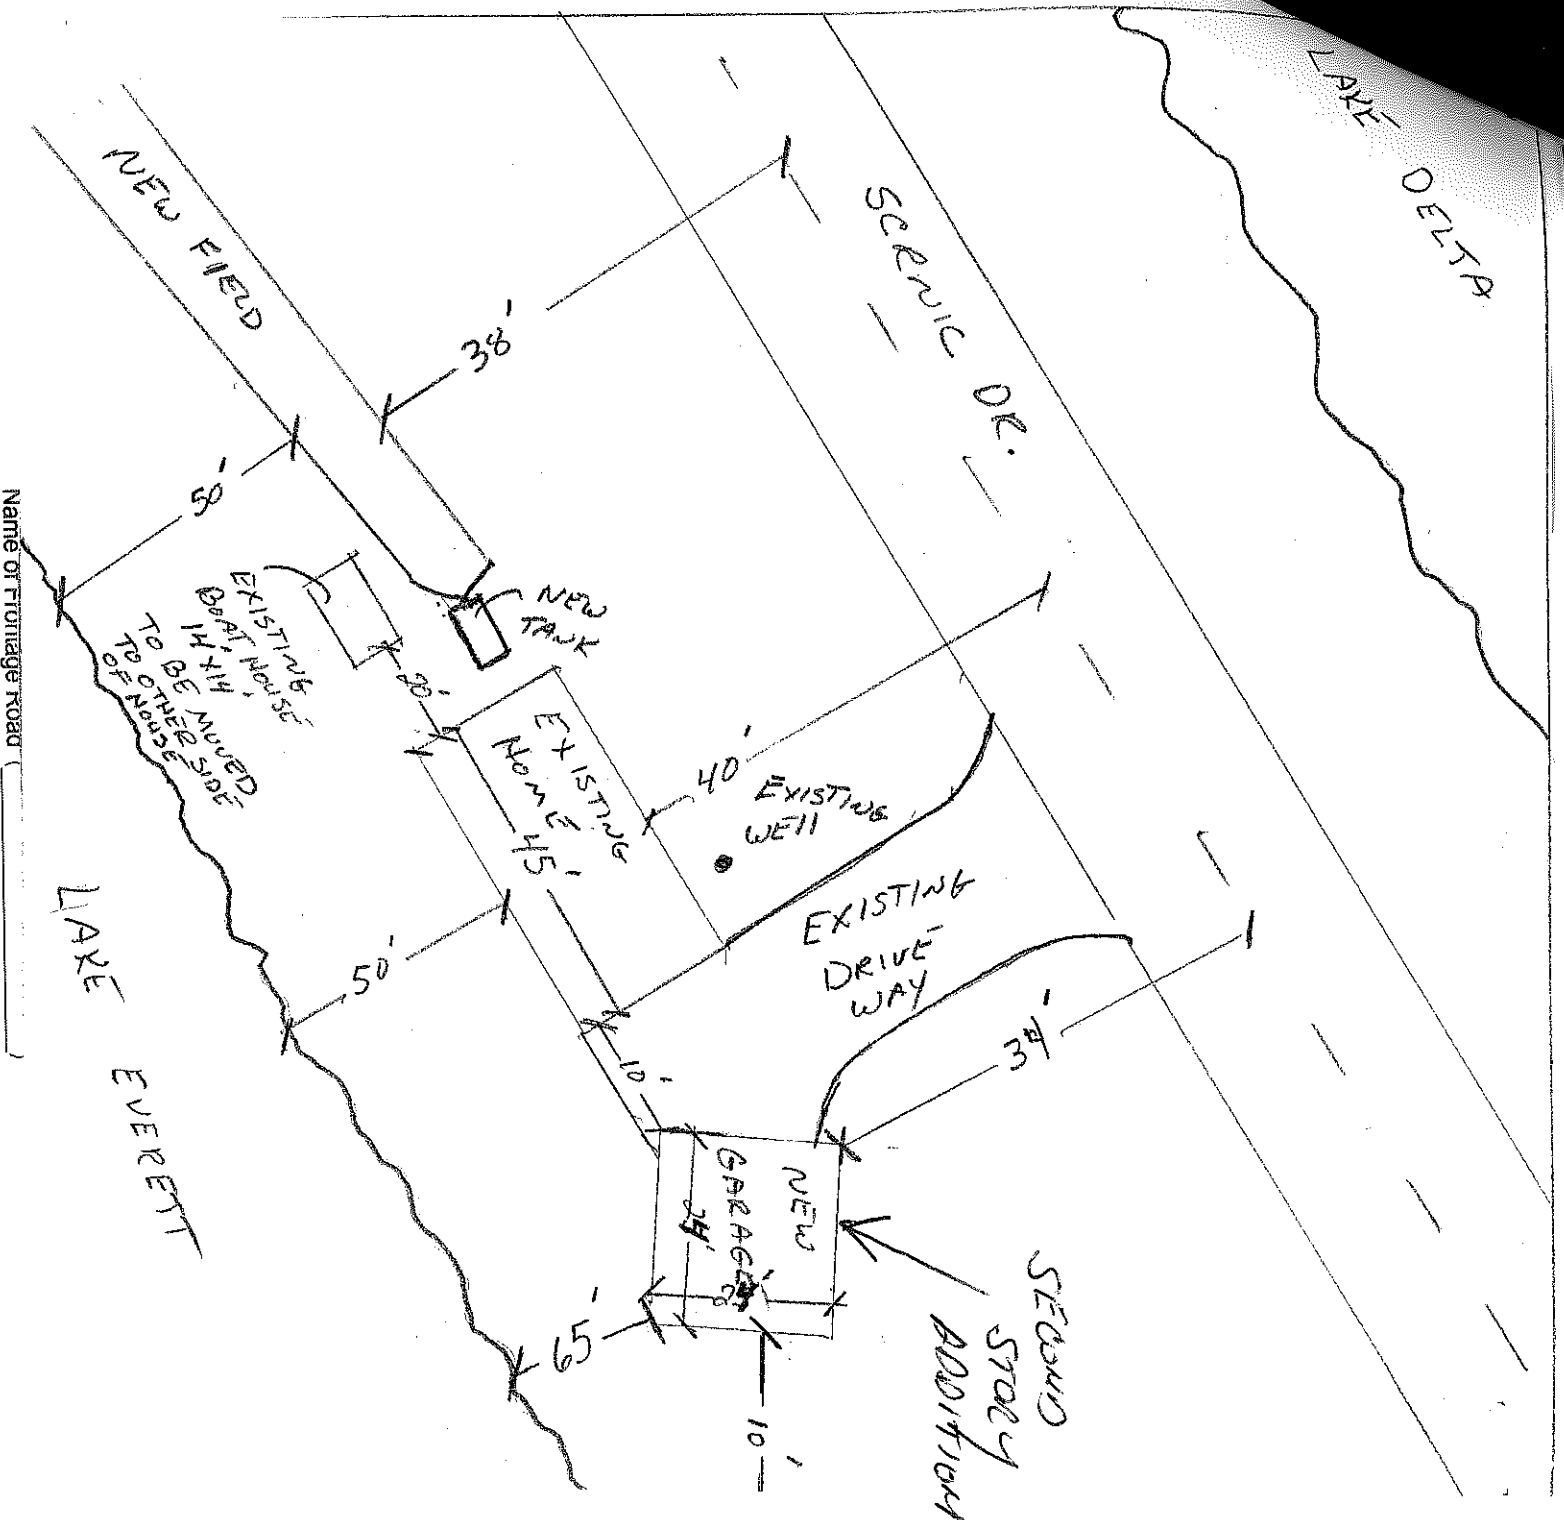 LAKE DELTA
SCENIC DR.
NEW FIELD
38'
50'
NEW
TANK
EXISTING
BOAT HOUSE
14' X 14'
TO BE MOVED
TO OTHER SIDE
OF HOUSE
20'
EXISTING
HOME
45'
40'
EXISTING
WELL
EXISTING
DRIVE
WAY
34'
50'
10'
NEW
GARAGE
24'
65'
10'
SECOND
STORY
ADDITION
LAKE EVERETT
Name of Frontage Road ( )